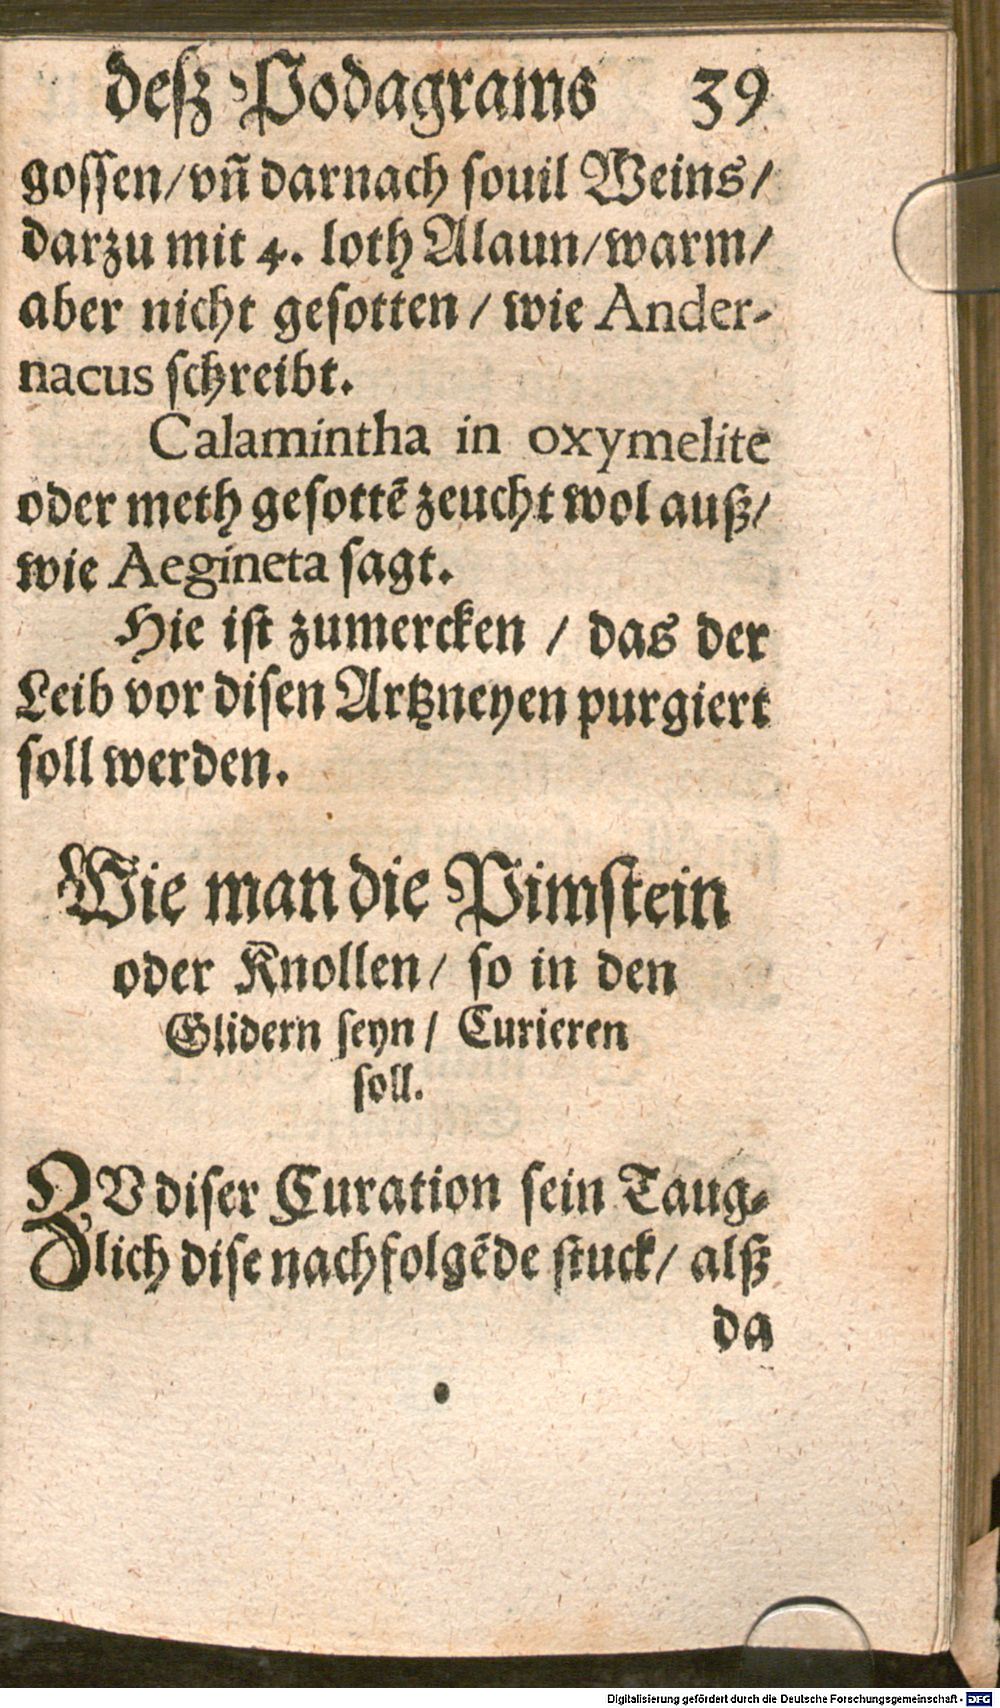 deſz Podagrams 39
goſſen/ vñ darnach ſouil Weins/
darzu mit 4. loth Alaun/ warm/
aber nicht geſotten / wie Ander-
nacus ſchreibt.
Calamintha in oxymelite
oder meth geſottẽ zeucht wol auß/
wie Aegineta ſagt.
Hie iſt zumercken / das der
Leib vor diſen Artzneyen purgiert
ſoll werden.
Wie man die Pimſtein
oder Knollen/ ſo in den
Glidern ſeyn/ Curieren
ſoll.
ZV diſer Curation ſein Taug-
lich diſe nachfolgẽde ſtuck/ alß
da
Digitalisierung gefördert durch die Deutsche Forschungsgemeinschaft - DFG